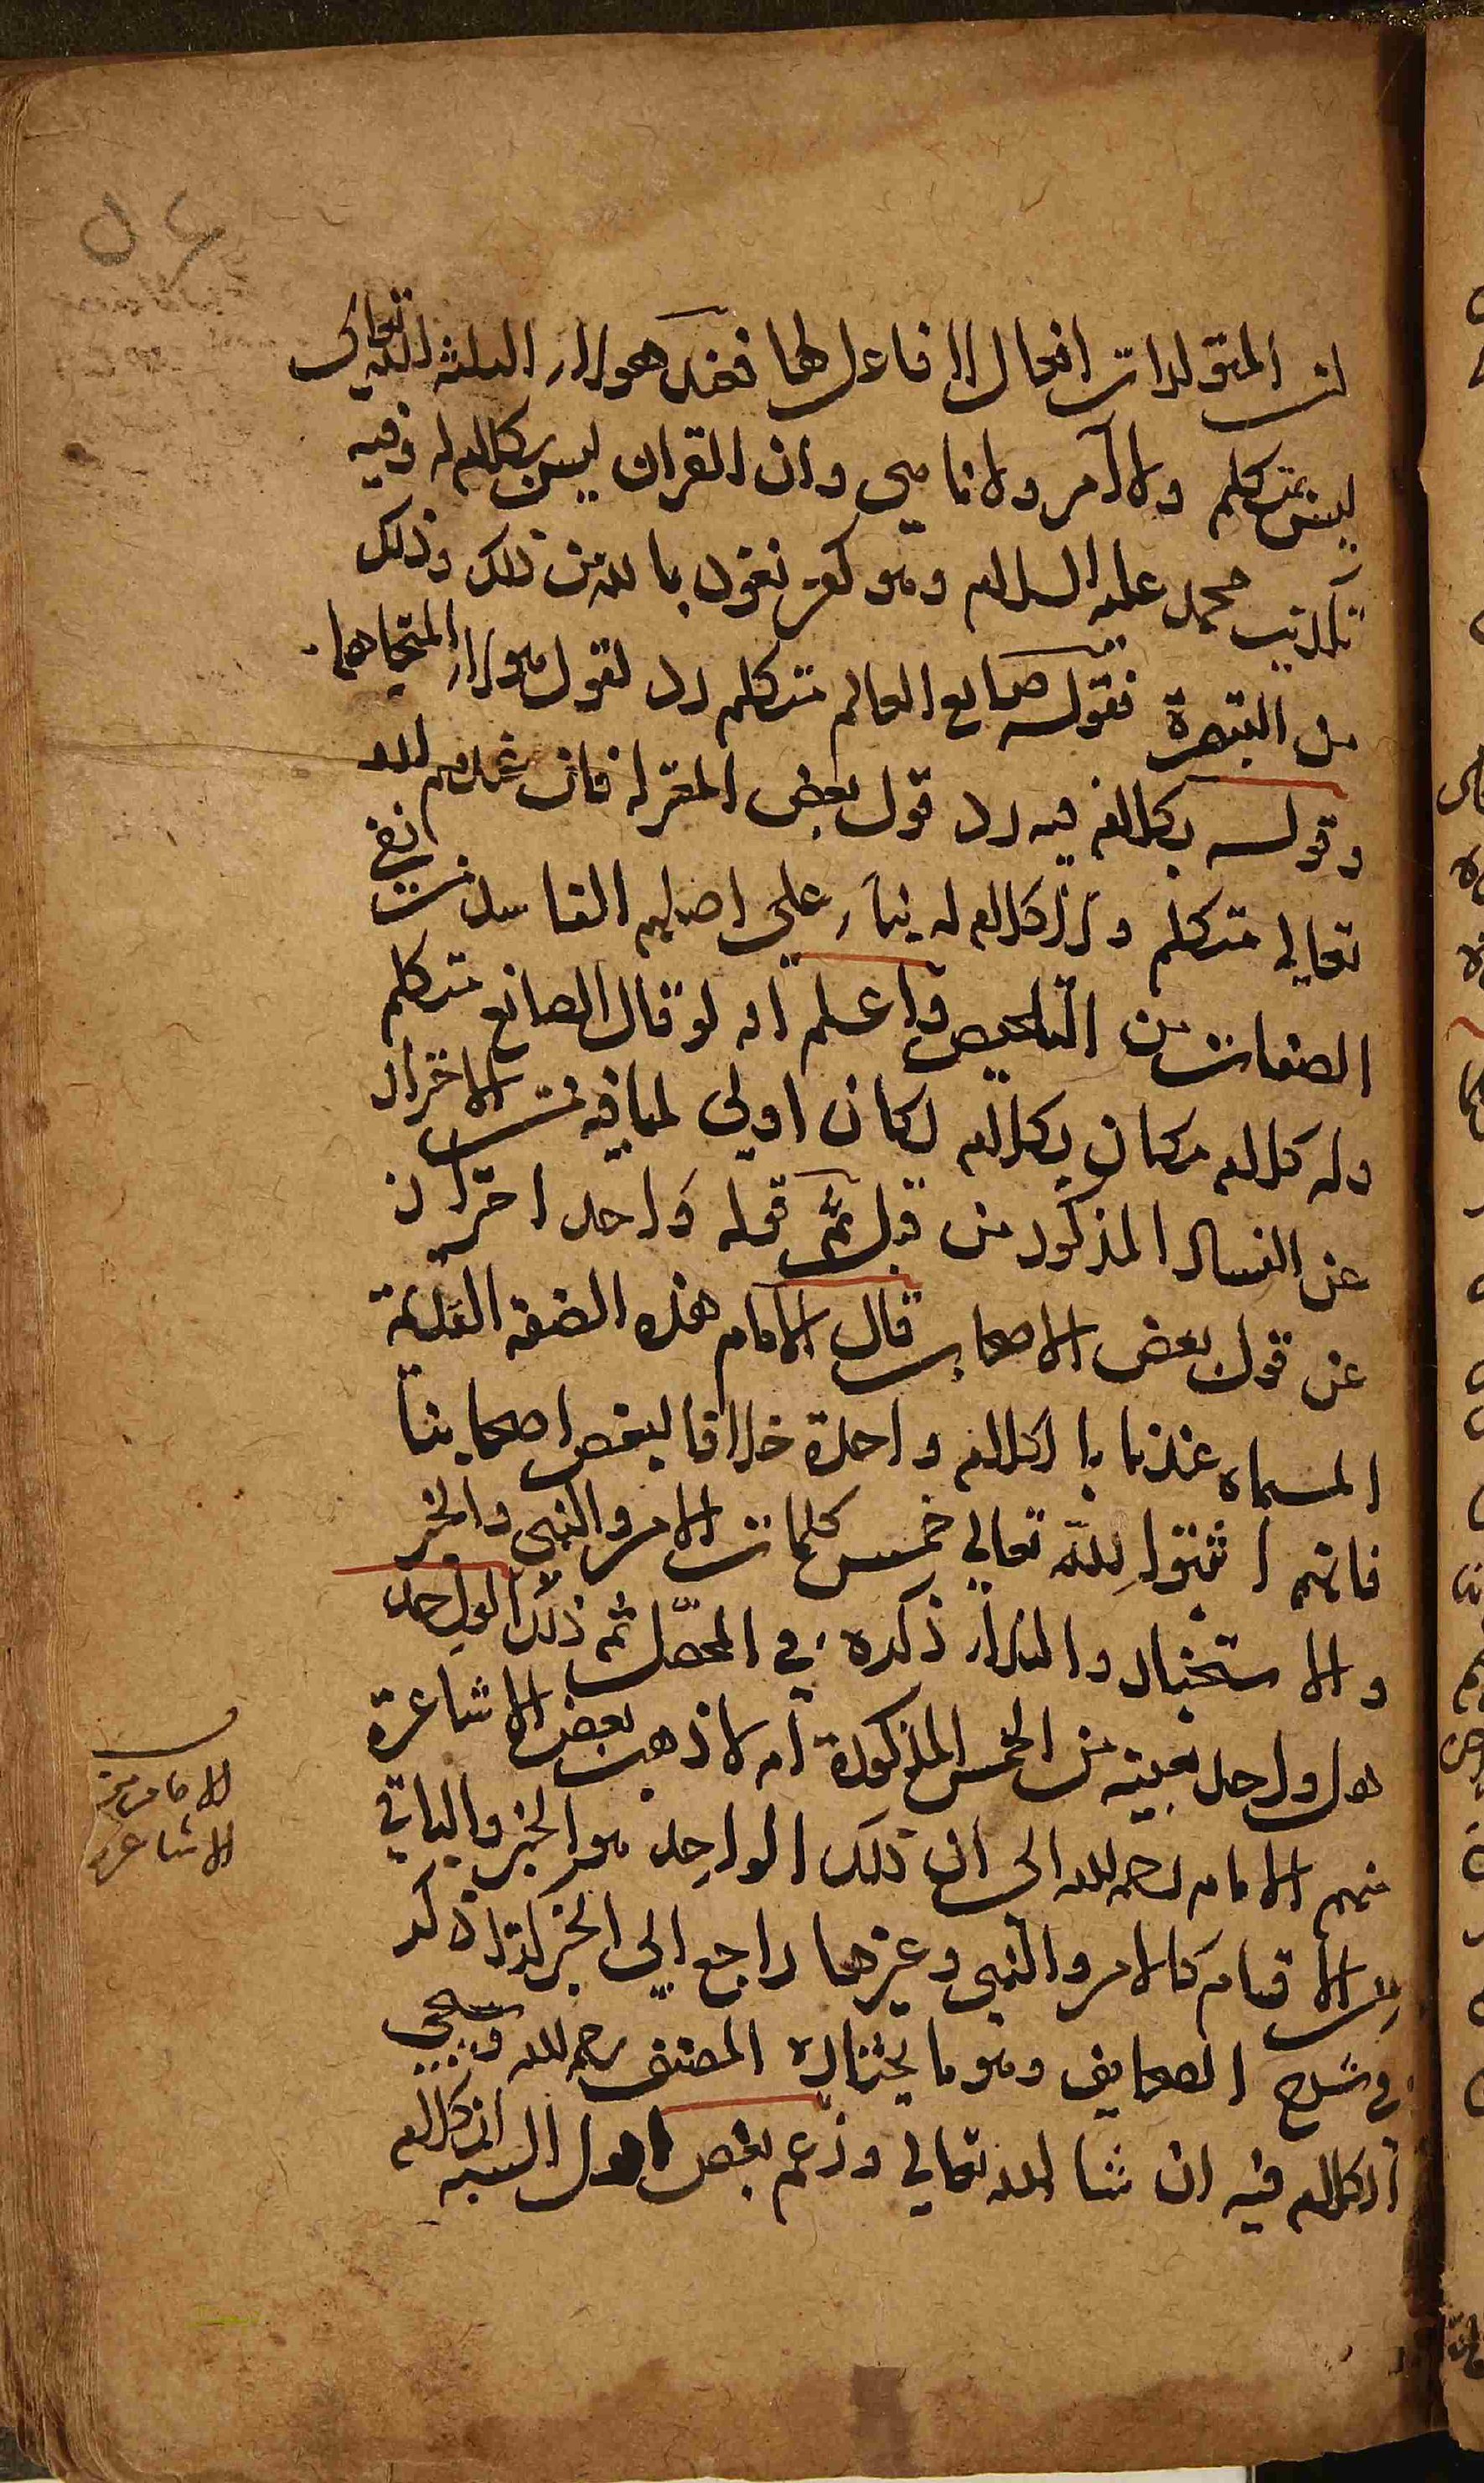 ان المتولدات افعال لا فاعل لها فعند هولاء الثلثة الله تعالى
ليس بمتكلم ولا آمر ولا ناهي وان القران ليس بكلام له وفيه
تكذيب محمد عليه السلام وهو كفر نعوذ بالله من ذلك وذلك
من التبصرة فقوله صانع العالم متكلم رد لقول هولاء
وقوله بكلام فيه رد قول بعض المعتزلة فان عندهم الله
تعالى متكلم ولا كلام له بناء على اصلهم الفاسد من نفي
الصفات من التلخيص واعلم انه لو قال الصانع متكلم
وله كلام مكان بكلام لكان اولى لما فيه من الاحتراز
عن الفساد المذكور من قبل ثم قوله واحد احتراز
عن قول بعض الاصحاب قال الامام هذه الصفة القديمة
المسماه عندنا بالكلام واحدة خلافا لبعض اصحابنا
فانهم اثبتوا لله تعالى خمس كلمات الامر والنهي والخبر
والاستخبار والنداء ذكره في المحصل ثم ذلك الواحد
هل واحد بعينه من الخمس المذكورة ام لا ذهب بعض الاشاعرة
منهم الامام رحمه الله الى ان ذلك الواحد هو الخبر والباقي
من الاقسام كالامر والنهي وغيرهما راجع الى الخبر كذا ذكر
في شرح الصحايف وهو ما يختاره المصنف رحمه الله وسيجي
الكلام فيه ان شا الله تعالى وزعم بعض اهل السنه ان كلام
الامام من
الاشاعرة